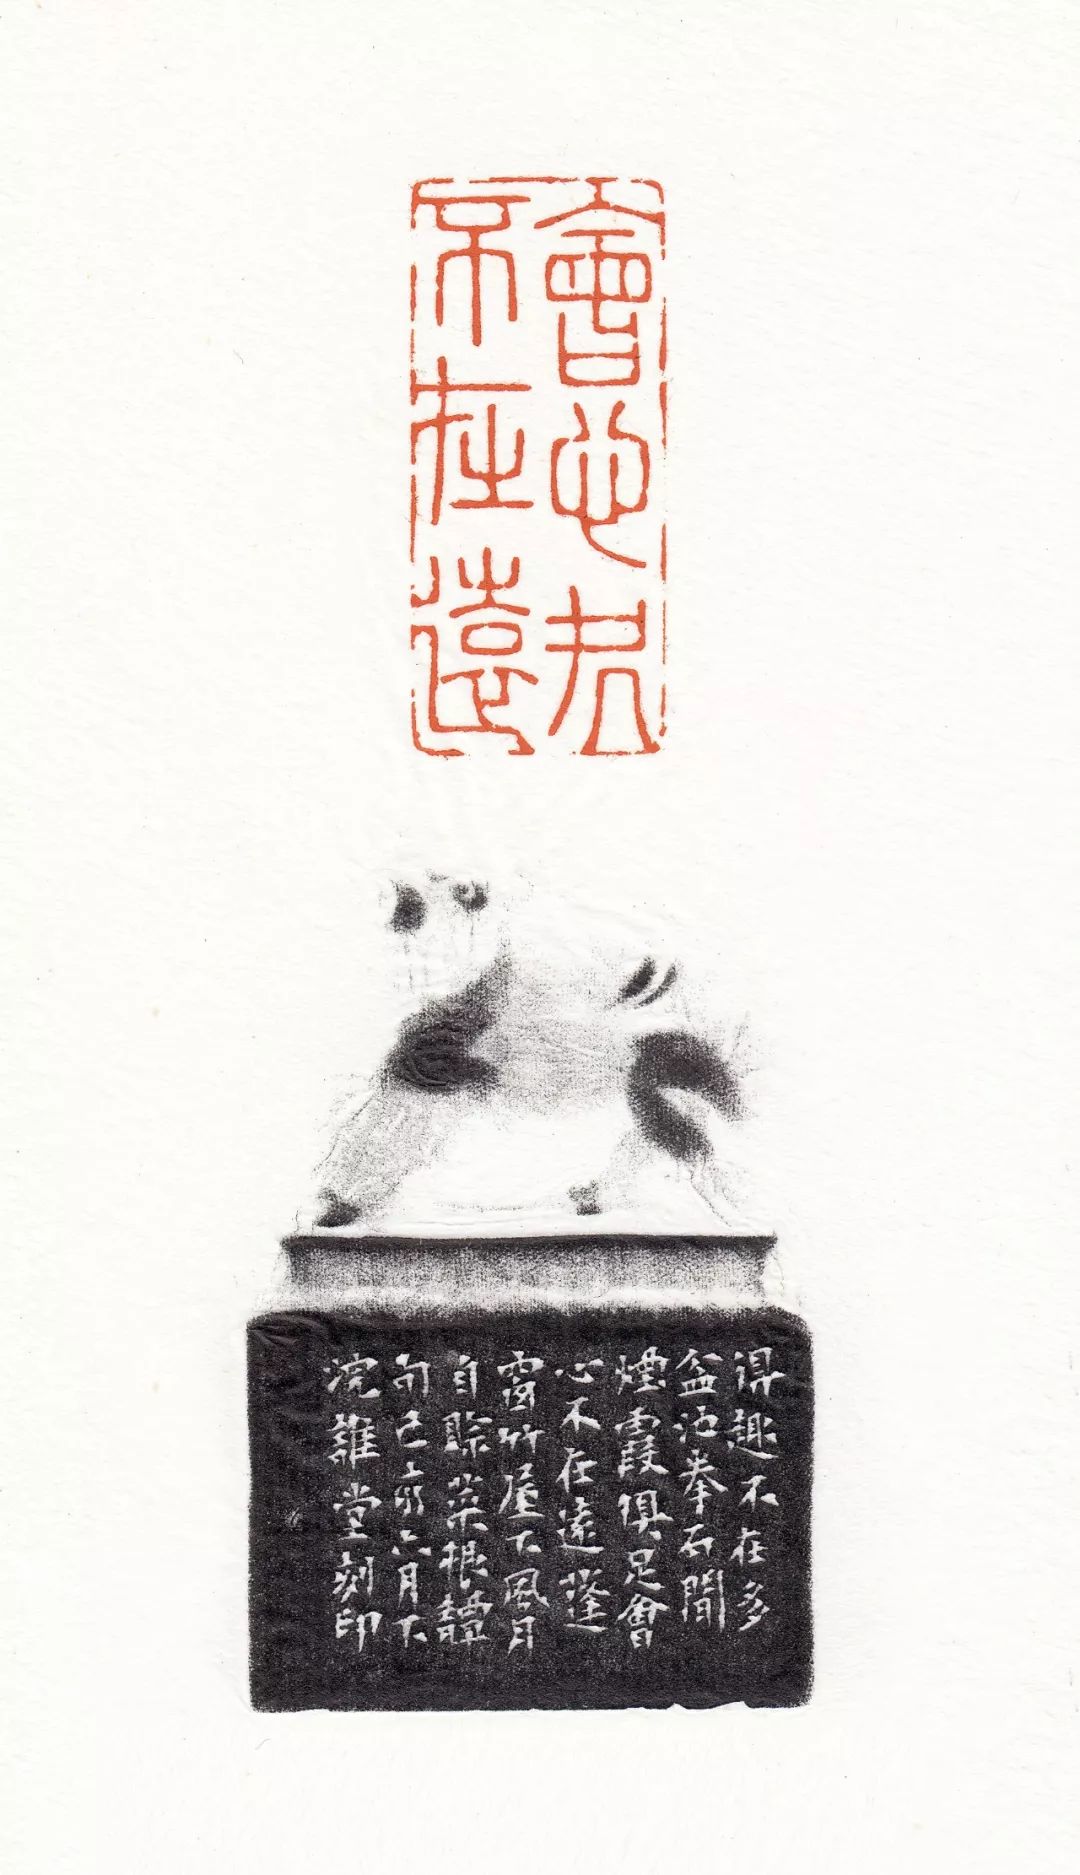 會心処
不在遠
得趣不在多
盆池拳石間
煙霞俱足會
心不在遠蓬
窗竹屋下風月
自賒菜根譚
句己亥六月下
浣堂刻印